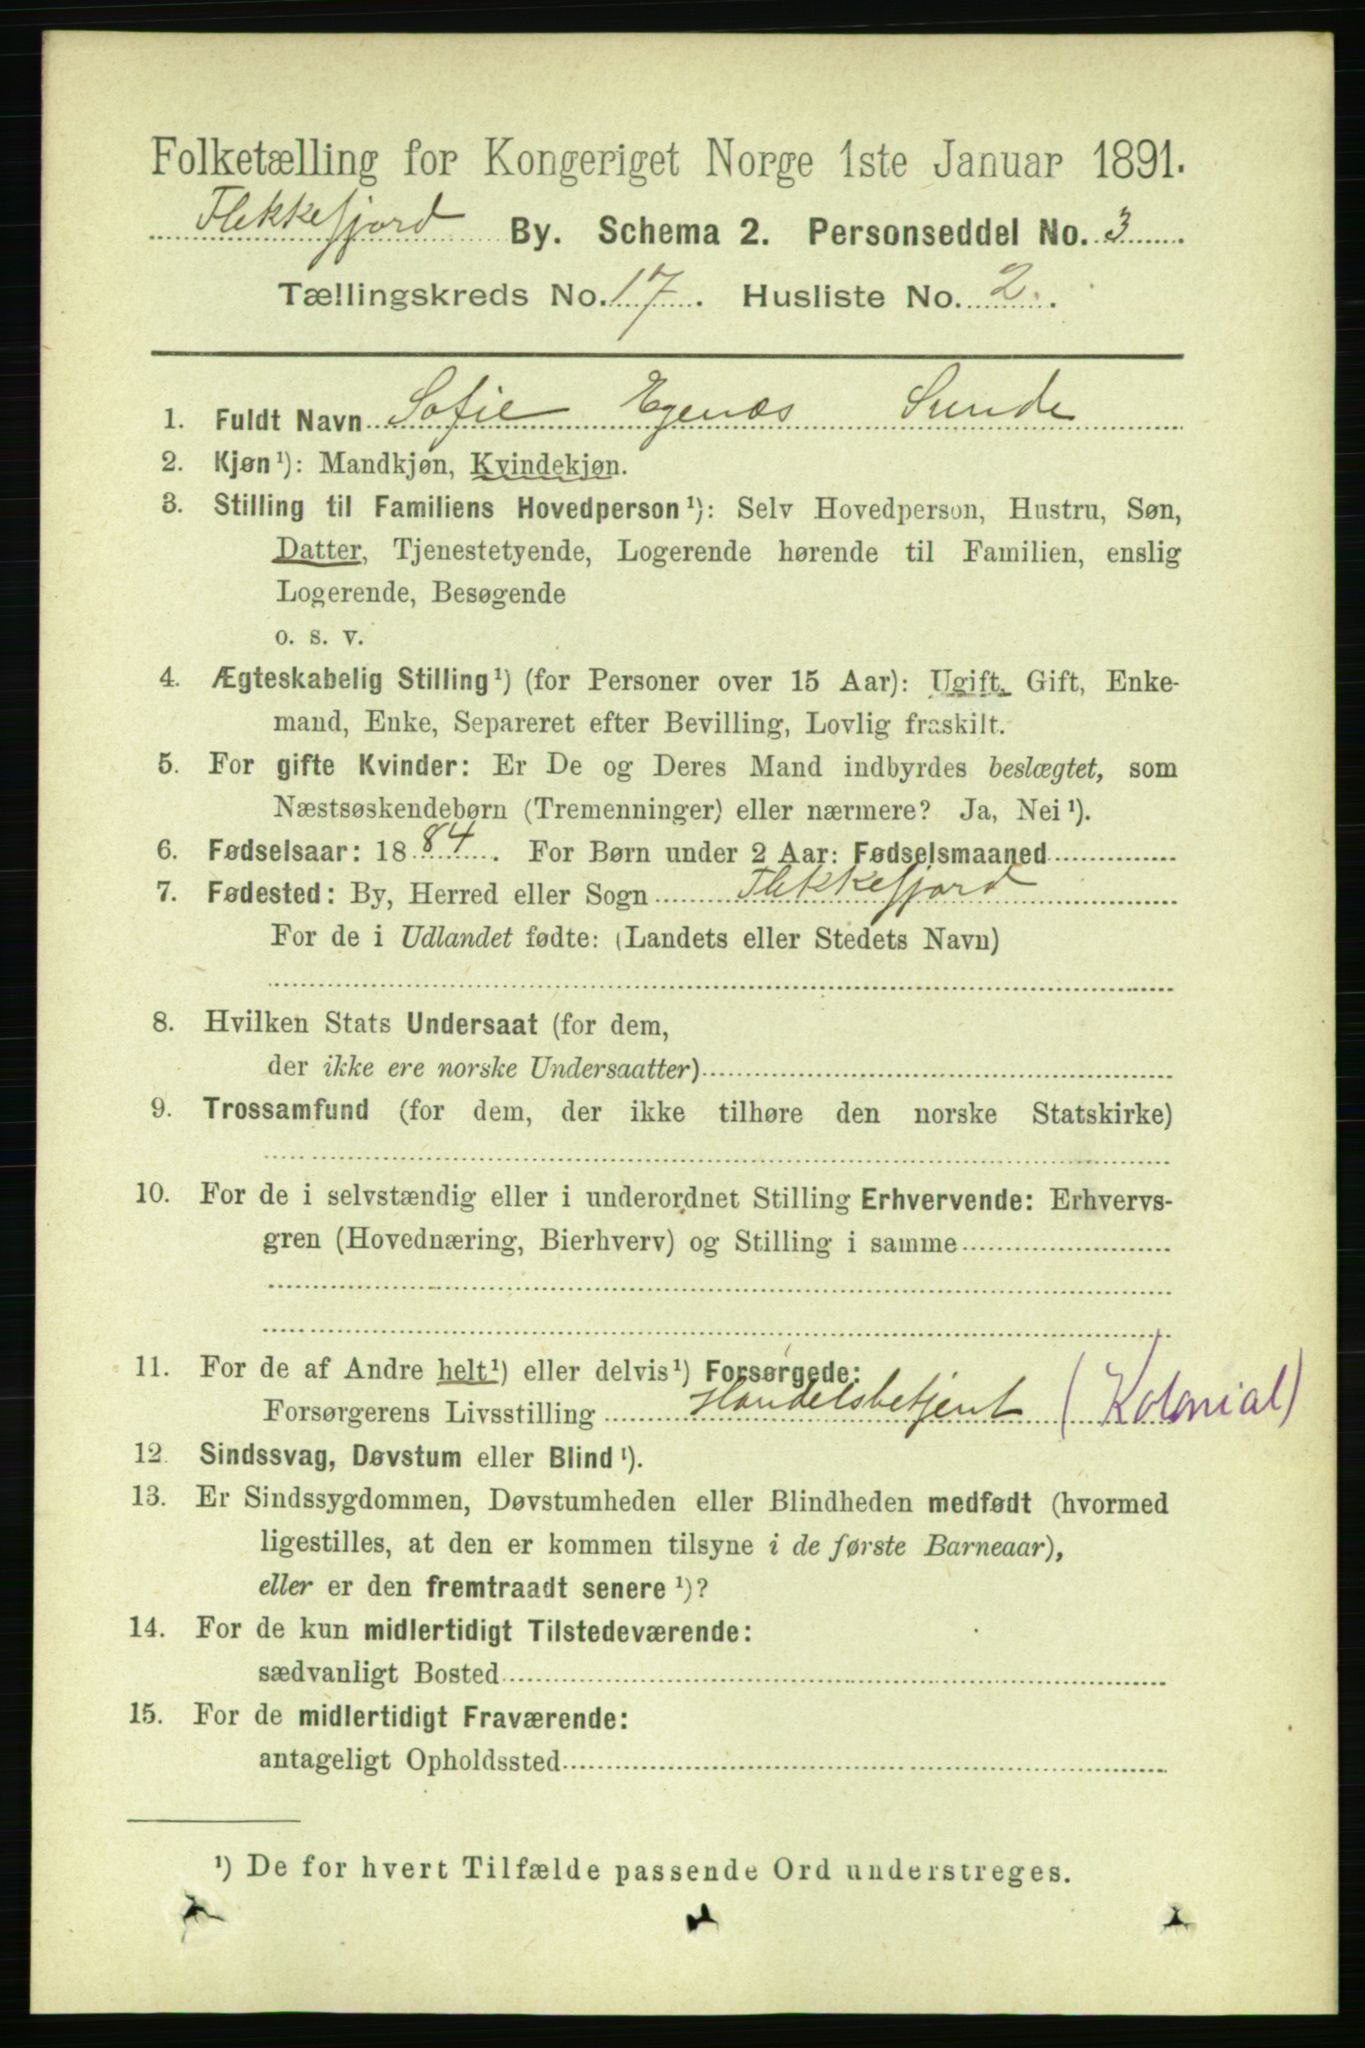 Folketælling for Kongeriget Norge 1ste Januar 1891.
Flekkefjord By. Schema 2. Personseddel No. 3
Tællingskreds No. 17. Husliste No. 2.
1. Fuldt Navn Sofie Egenæs Sunde
2. Kjøn¹): Mandkjøn, Kvindekjøn.
3. Stilling til Familiens Hovedperson¹): Selv Hovedperson, Hustru, Søn,
Datter, Tjenestetyende, Logerende hørende til Familien, enslig
Logerende, Besøgende
o. s. v.
4. Ægteskabelig Stilling¹) (for Personer over 15 Aar): Ugift, Gift, Enke-
mand, Enke, Separeret efter Bevilling, Lovlig fraskilt.
5. For gifte Kvinder: Er De og Deres Mand indbyrdes beslægtet, som
Næstsøskendebørn (Tremenninger) eller nærmere? Ja, Nei¹).
6. Fødselsaar: 1884. For Børn under 2 Aar: Fødselsmaaned
7. Fødested: By, Herred eller Sogn Flekkefjord
For de i Udlandet fødte: (Landets eller Stedets Navn)
8. Hvilken Stats Undersaat (for dem,
der ikke ere norske Undersaatter)
9. Trossamfund (for dem, der ikke tilhøre den norske Statskirke)
10. For de i selvstændig eller i underordnet Stilling Erhvervende: Erhvervs-
gren (Hovednæring, Bierhverv) og Stilling i samme
11. For de af Andre helt¹) eller delvis¹) Forsørgede:
Forsørgerens Livsstilling Handelsbetjent (Kolonial)
12. Sindssvag, Døvstum eller Blind¹).
13. Er Sindssygdommen, Døvstumheden eller Blindheden medfødt (hvormed
ligestilles, at den er kommen tilsyne i de første Barneaar),
eller er den fremtraadt senere¹)?
14. For de kun midlertidigt Tilstedeværende:
sædvanligt Bosted
15. For de midlertidigt Fraværende:
antageligt Opholdssted
¹) De for hvert Tilfælde passende Ord understreges.